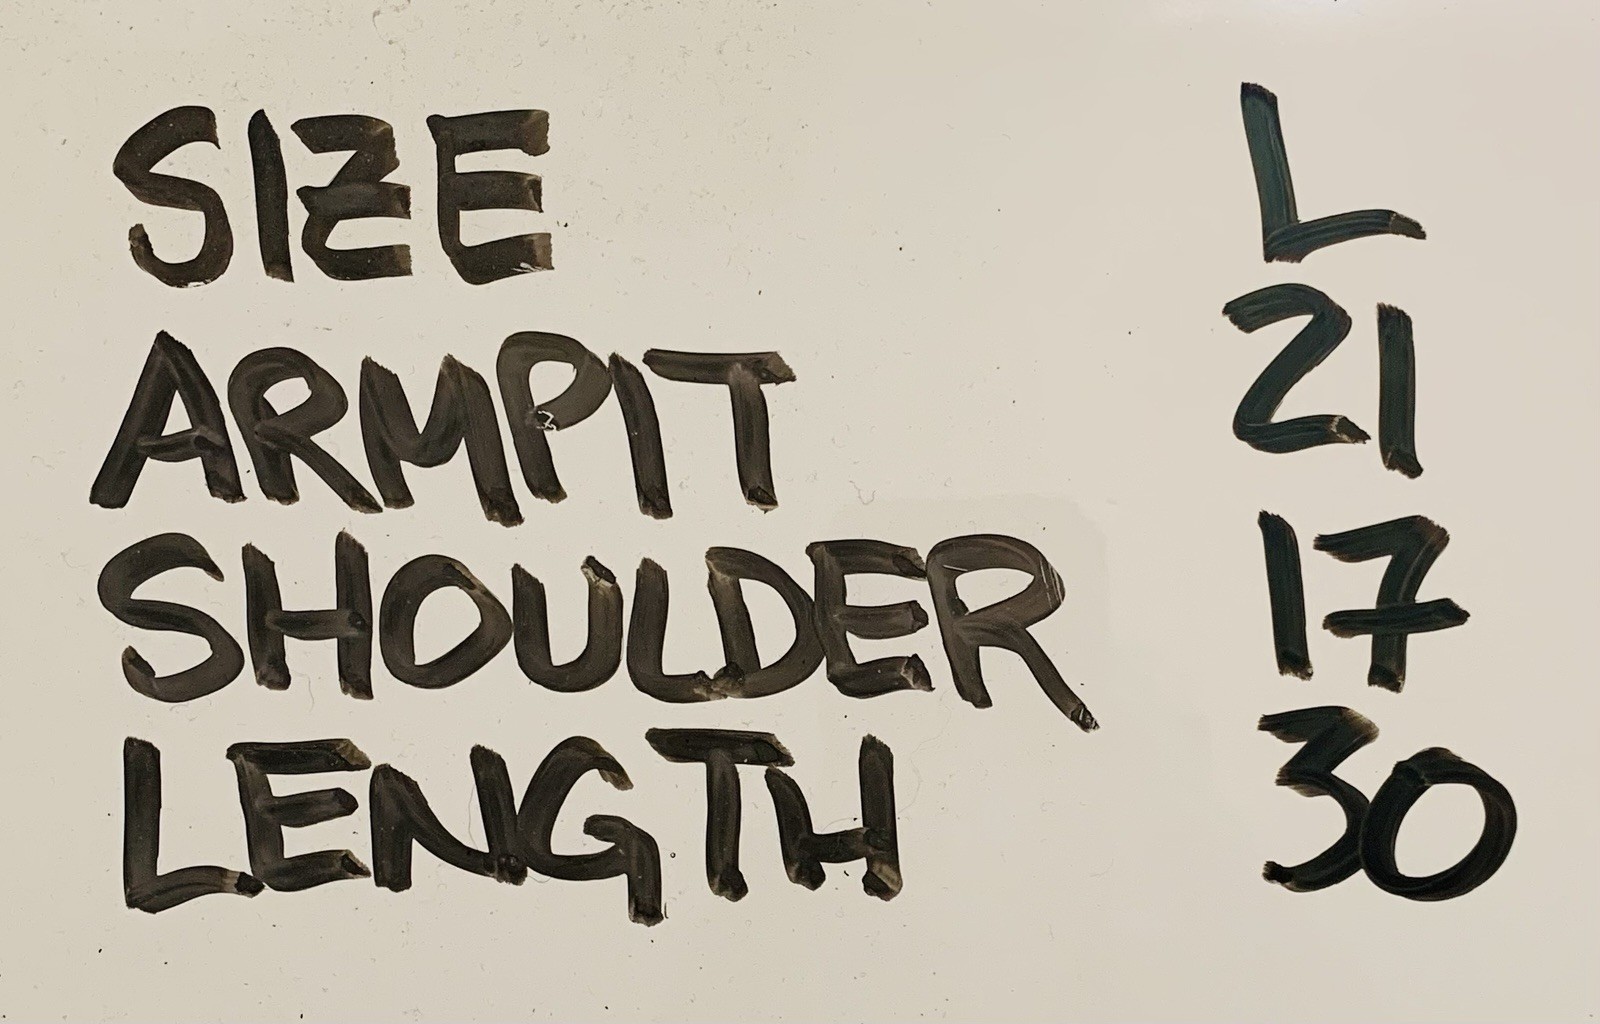 SIZE L
ARMPIT 21
SHOULDER 17
LENGTH 30